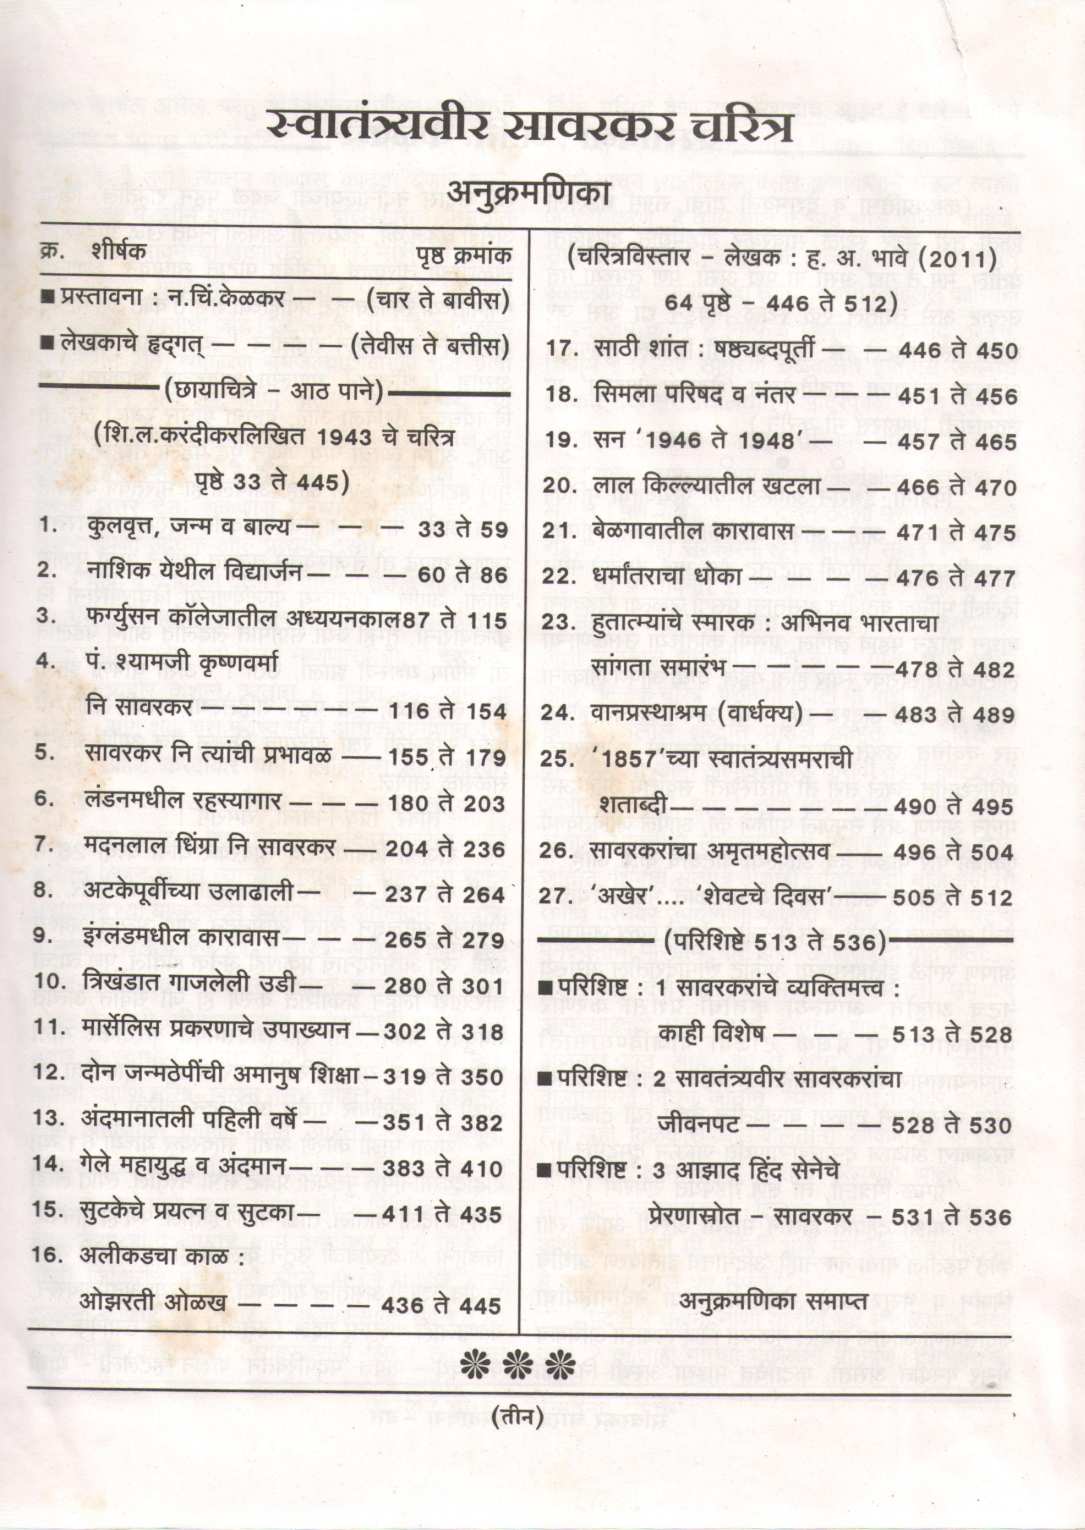 स्वातंत्र्यवीर सावरकर चरित्र
अनुक्रमणिका
क्र. शीर्षक पृष्ठ क्रमांक
■ प्रस्तावना : न.चिं.केळकर — — (चार ते बावीस)
■ लेखकाचे हृद्गत् — — — — (तेवीस ते बत्तीस)
(छायाचित्रे - आठ पाने)
(शि.ल.करंदीकरलिखित 1943 चे चरित्र
पृष्ठे 33 ते 445)
1. कुलवृत्त, जन्म व बाल्य — — — 33 ते 59
2. नाशिक येथील विद्यार्जन — — — 60 ते 86
3. फर्ग्युसन कॉलेजातील अध्ययनकाल87 ते 115
4. पं. श्यामजी कृष्णवर्मा
नि सावरकर — — — — — — 116 ते 154
5. सावरकर नि त्यांची प्रभावळ —— 155 ते 179
6. लंडनमधील रहस्यागार — — — 180 ते 203
7. मदनलाल धिंग्रा नि सावरकर —— 204 ते 236
8. अटकेपूर्वीच्या उलाढाली — — 237 ते 264
9. इंग्लंडमधील कारावास — — — 265 ते 279
10. त्रिखंडात गाजलेली उडी — — 280 ते 301
11. मार्सेलिस प्रकरणाचे उपाख्यान — 302 ते 318
12. दोन जन्मठेपींची अमानुष शिक्षा – 319 ते 350
13. अंदमानातली पहिली वर्षे — — 351 ते 382
14. गेले महायुद्ध व अंदमान — — — 383 ते 410
15. सुटकेचे प्रयत्न व सुटका — — 411 ते 435
16. अलीकडचा काळ :
ओझरती ओळख — — — — 436 ते 445
(चरित्रविस्तार - लेखक : ह. अ. भावे (2011)
64 पृष्ठे - 446 ते 512)
17. साठी शांत : षष्ठ्यब्दपूर्ती — — 446 ते 450
18. सिमला परिषद व नंतर — — — 451 ते 456
19. सन ‘1946 ते 1948’ — — 457 ते 465
20. लाल किल्ल्यातील खटला — — 466 ते 470
21. बेळगावातील कारावास — — — 471 ते 475
22. धर्मांतराचा धोका — — — — 476 ते 477
23. हुतात्म्यांचे स्मारक : अभिनव भारताचा
सांगता समारंभ — — — — — — 478 ते 482
24. वानप्रस्थाश्रम (वार्धक्य) — — 483 ते 489
25. ‘1857’च्या स्वातंत्र्यसमराची
शताब्दी — — — — — — — — 490 ते 495
26. सावरकरांचा अमृतमहोत्सव —— 496 ते 504
27. ‘अखेर’.... ‘शेवटचे दिवस’ —— 505 ते 512
(परिशिष्टे 513 ते 536)
■ परिशिष्ट : 1 सावरकरांचे व्यक्तिमत्त्व :
काही विशेष — — — — 513 ते 528
■ परिशिष्ट : 2 सावतंत्र्यवीर सावरकरांचा
जीवनपट — — — — — 528 ते 530
■ परिशिष्ट : 3 आझाद हिंद सेनेचे
प्रेरणास्रोत - सावरकर - 531 ते 536
अनुक्रमणिका समाप्त
(तीन)